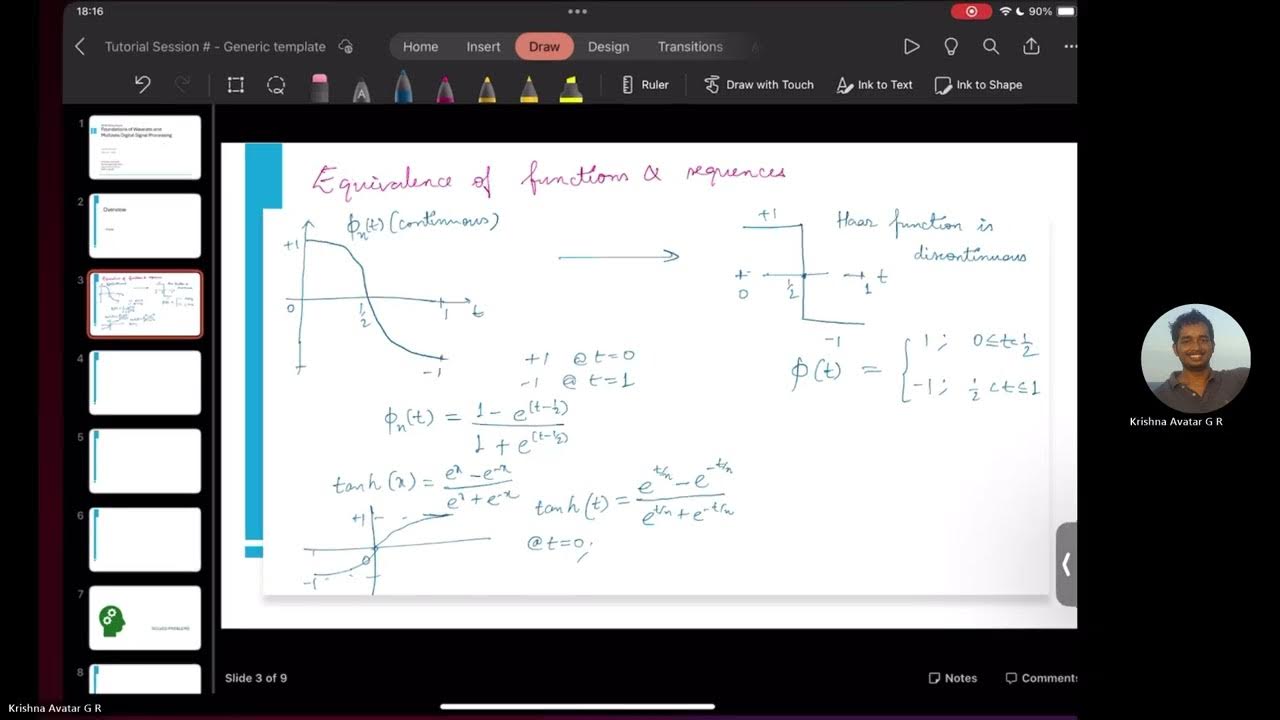 18:16
90%
Tutorial Session # - Generic template
Home Insert Draw Design Transitions
Ruler Draw with Touch Ink to Text Ink to Shape
1
Foundations of Wavelets and
Multirate Digital Signal Processing
2
Overview
3
4
5
6
7
SOLVED PROBLEMS
8
Equivalence of functions & sequences
ϕₙ(t) (continuous)
+1
0
1/2
1
t
-1
+1 @ t=0
-1 @ t=1
+1
0
1/2
1
t
-1
Haar function is
discontinuous
ϕ(t) = { 1 ; 0≤t<1/2
-1 ; 1/2<t≤1
ϕₙ(t) = (1 - e^(t-1/2)) / (1 + e^(t-1/2))
tanh(x) = (e^x - e^-x) / (e^x + e^-x)
tanh(t) = (e^(t/n) - e^(-t/n)) / (e^(t/n) + e^(-t/n))
@ t=0,
+1
0
-1
Slide 3 of 9
Notes Comments
Krishna Avatar G R
Krishna Avatar G R